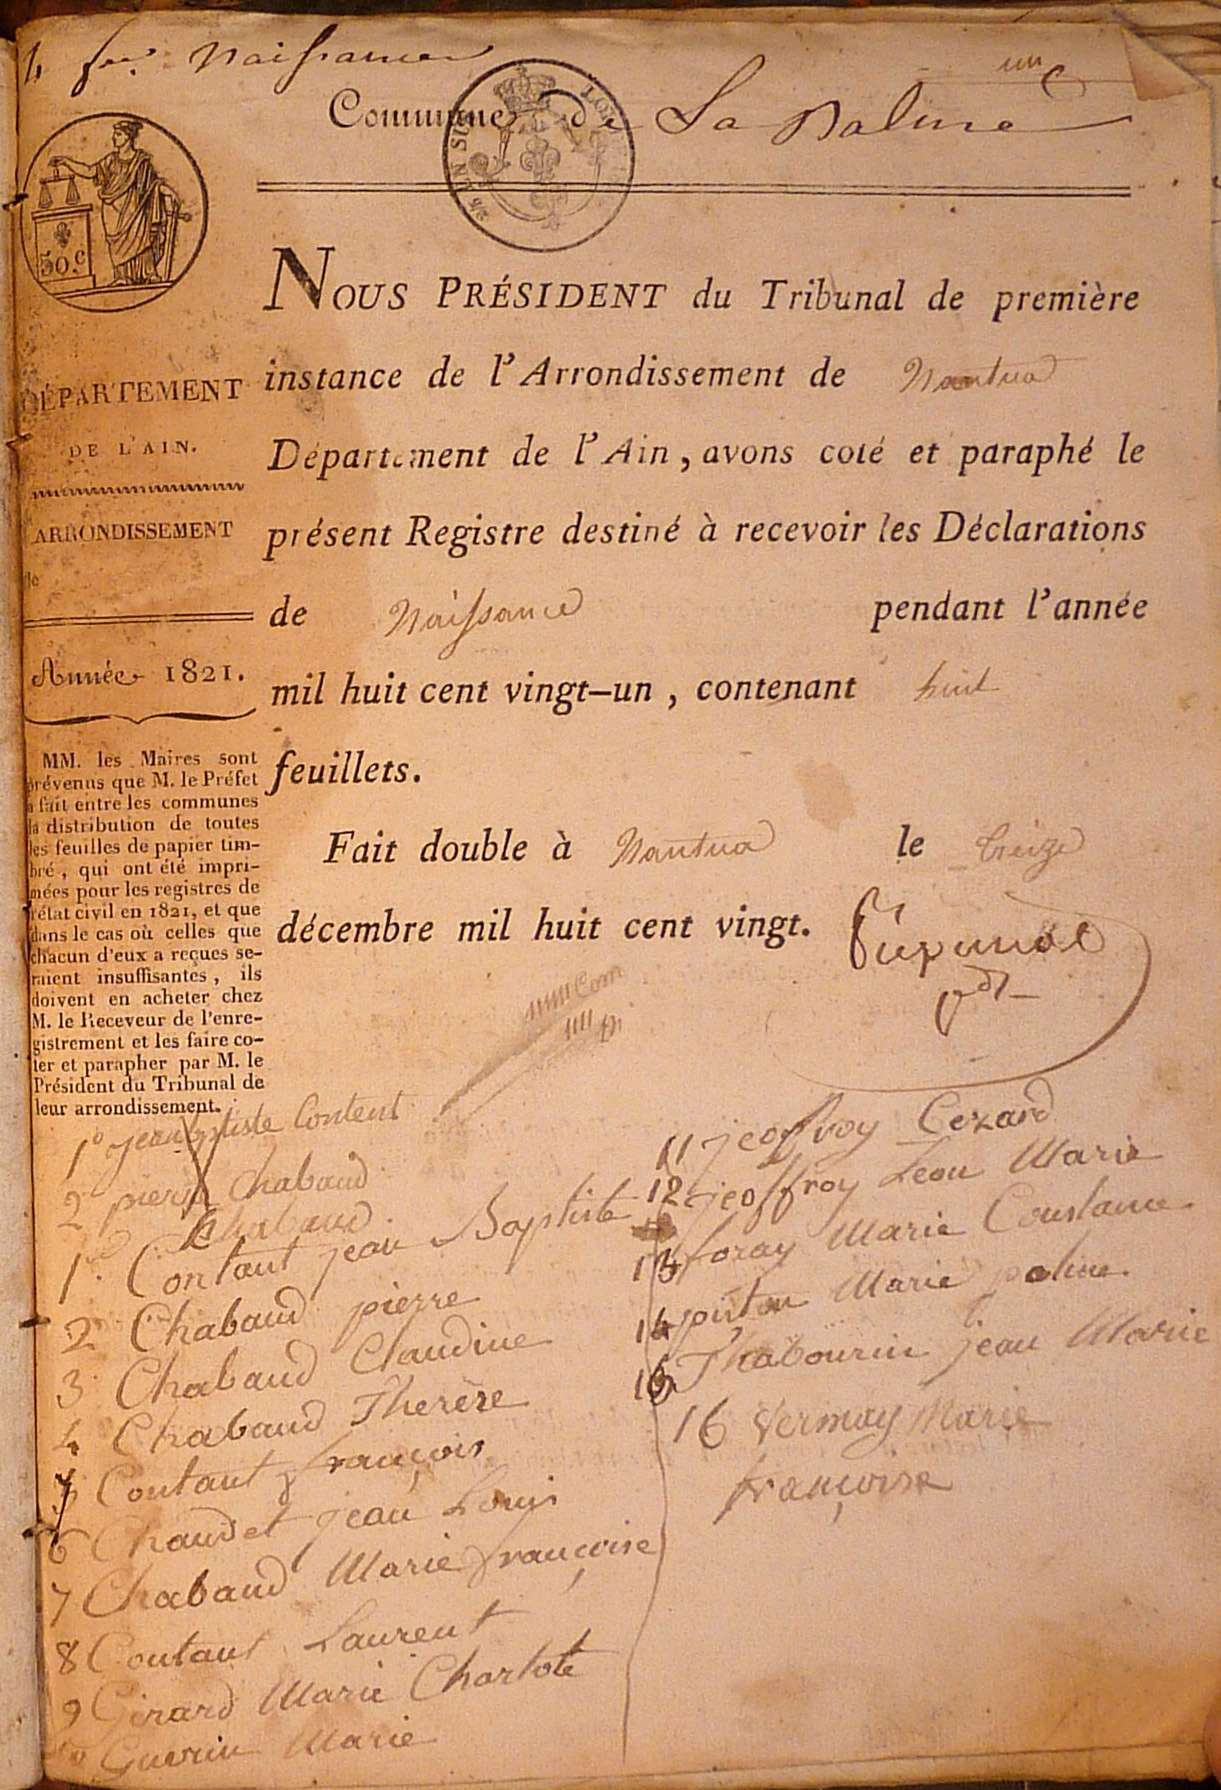 4 fet Naissances
un
Commune de La Balme
50.c
NOUS PRÉSIDENT du Tribunal de première
instance de l'Arrondissement de Nantua
Département de l'Ain, avons coté et paraphé le
présent Registre destiné à recevoir les Déclarations
de Naissance pendant l'année
mil huit cent vingt-un, contenant huit
feuillets.
Fait double à Nantua le treize
décembre mil huit cent vingt.
pdt
DÉPARTEMENT
DE L'AIN.
ARRONDISSEMENT
de
Année 1821.
MM. les Maires sont
prévenus que M. le Préfet
a fait entre les communes
la distribution de toutes
les feuilles de papier tim-
bré, qui ont été impri-
mées pour les registres de
l'état civil en 1821, et que
dans le cas où celles que
chacun d'eux a reçues se-
raient insuffisantes, ils
doivent en acheter chez
M. le Receveur de l'enre-
gistrement et les faire co-
ter et parapher par M. le
Président du Tribunal de
leur arrondissement.
1° Jean Baptiste Content
2° pierre Chabaud
Chabaud
1° Contant jean Baptiste
2 Chabaud pierre
3 Chabaud Claudine
4 Chabaud Therèse
5 Contant françois
6 Chaudet jean Louis
7 Chabaud Marie françoise
8 Contant Laurent
9 Girard Marie Charlote
10 Guerin Marie
11 jeoffroy Cezard
12 jeoffroy Leon Marie
13 foray Marie Constance
14 piston Marie poline
15 Thabourin jean Marie
16 Vermay Marie
françoise